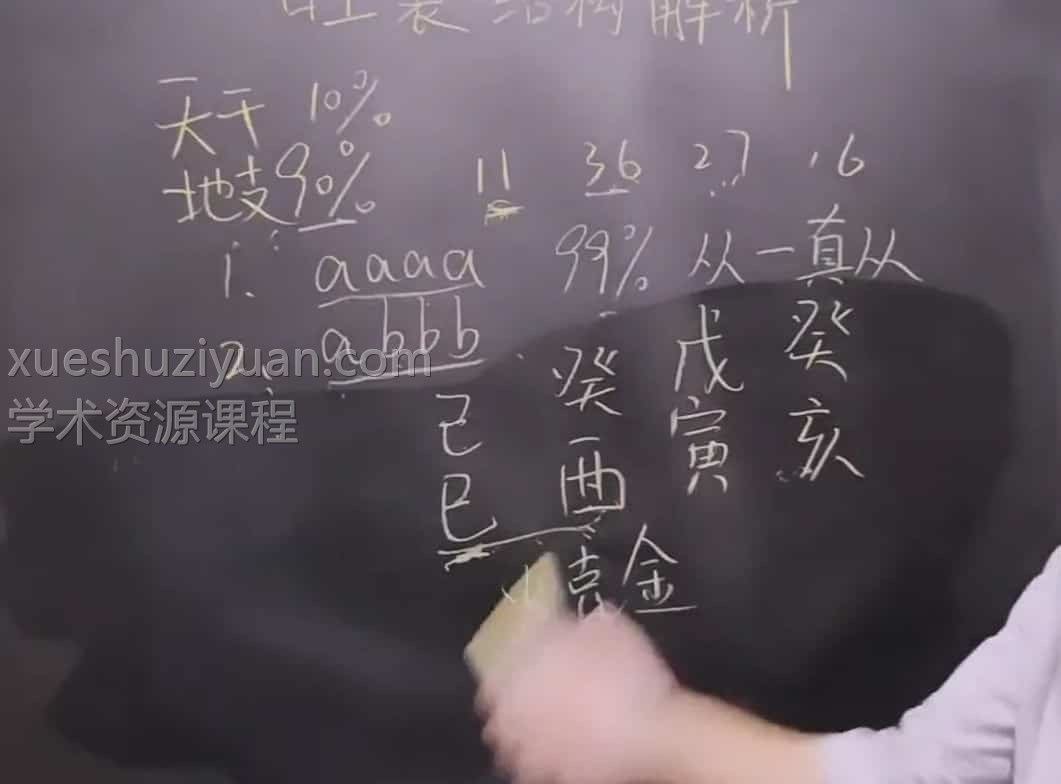 旺衰结构解析
天干 10%
地支 90%
11 36 27 16
1. aaaa 99% 从一真从
2. abbb
xueshuziyuan.com
学术资源课程
己 癸 戊 癸
巳 酉 寅 亥
克金